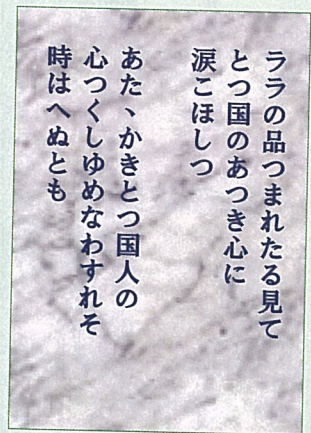 ララの品つまれたる見て
とつ国のあつき心に
涙こほしつ
あたゝかきとつ国人の
心つくしゆめなわすれそ
時はへぬとも